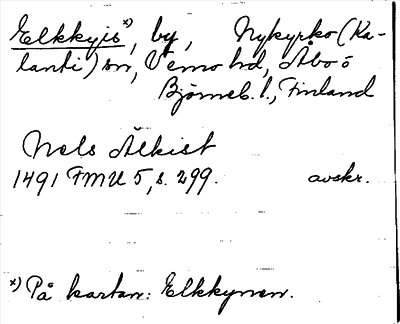 Elkkyis*), by, Nykyrko (Ka-
lanti) sn, Vemo hd, Åbo o
Björneb. l., Finland
Nels Älkist
1491 FMU 5, s. 299. avskr.
*) På kartan: Elkkynen.